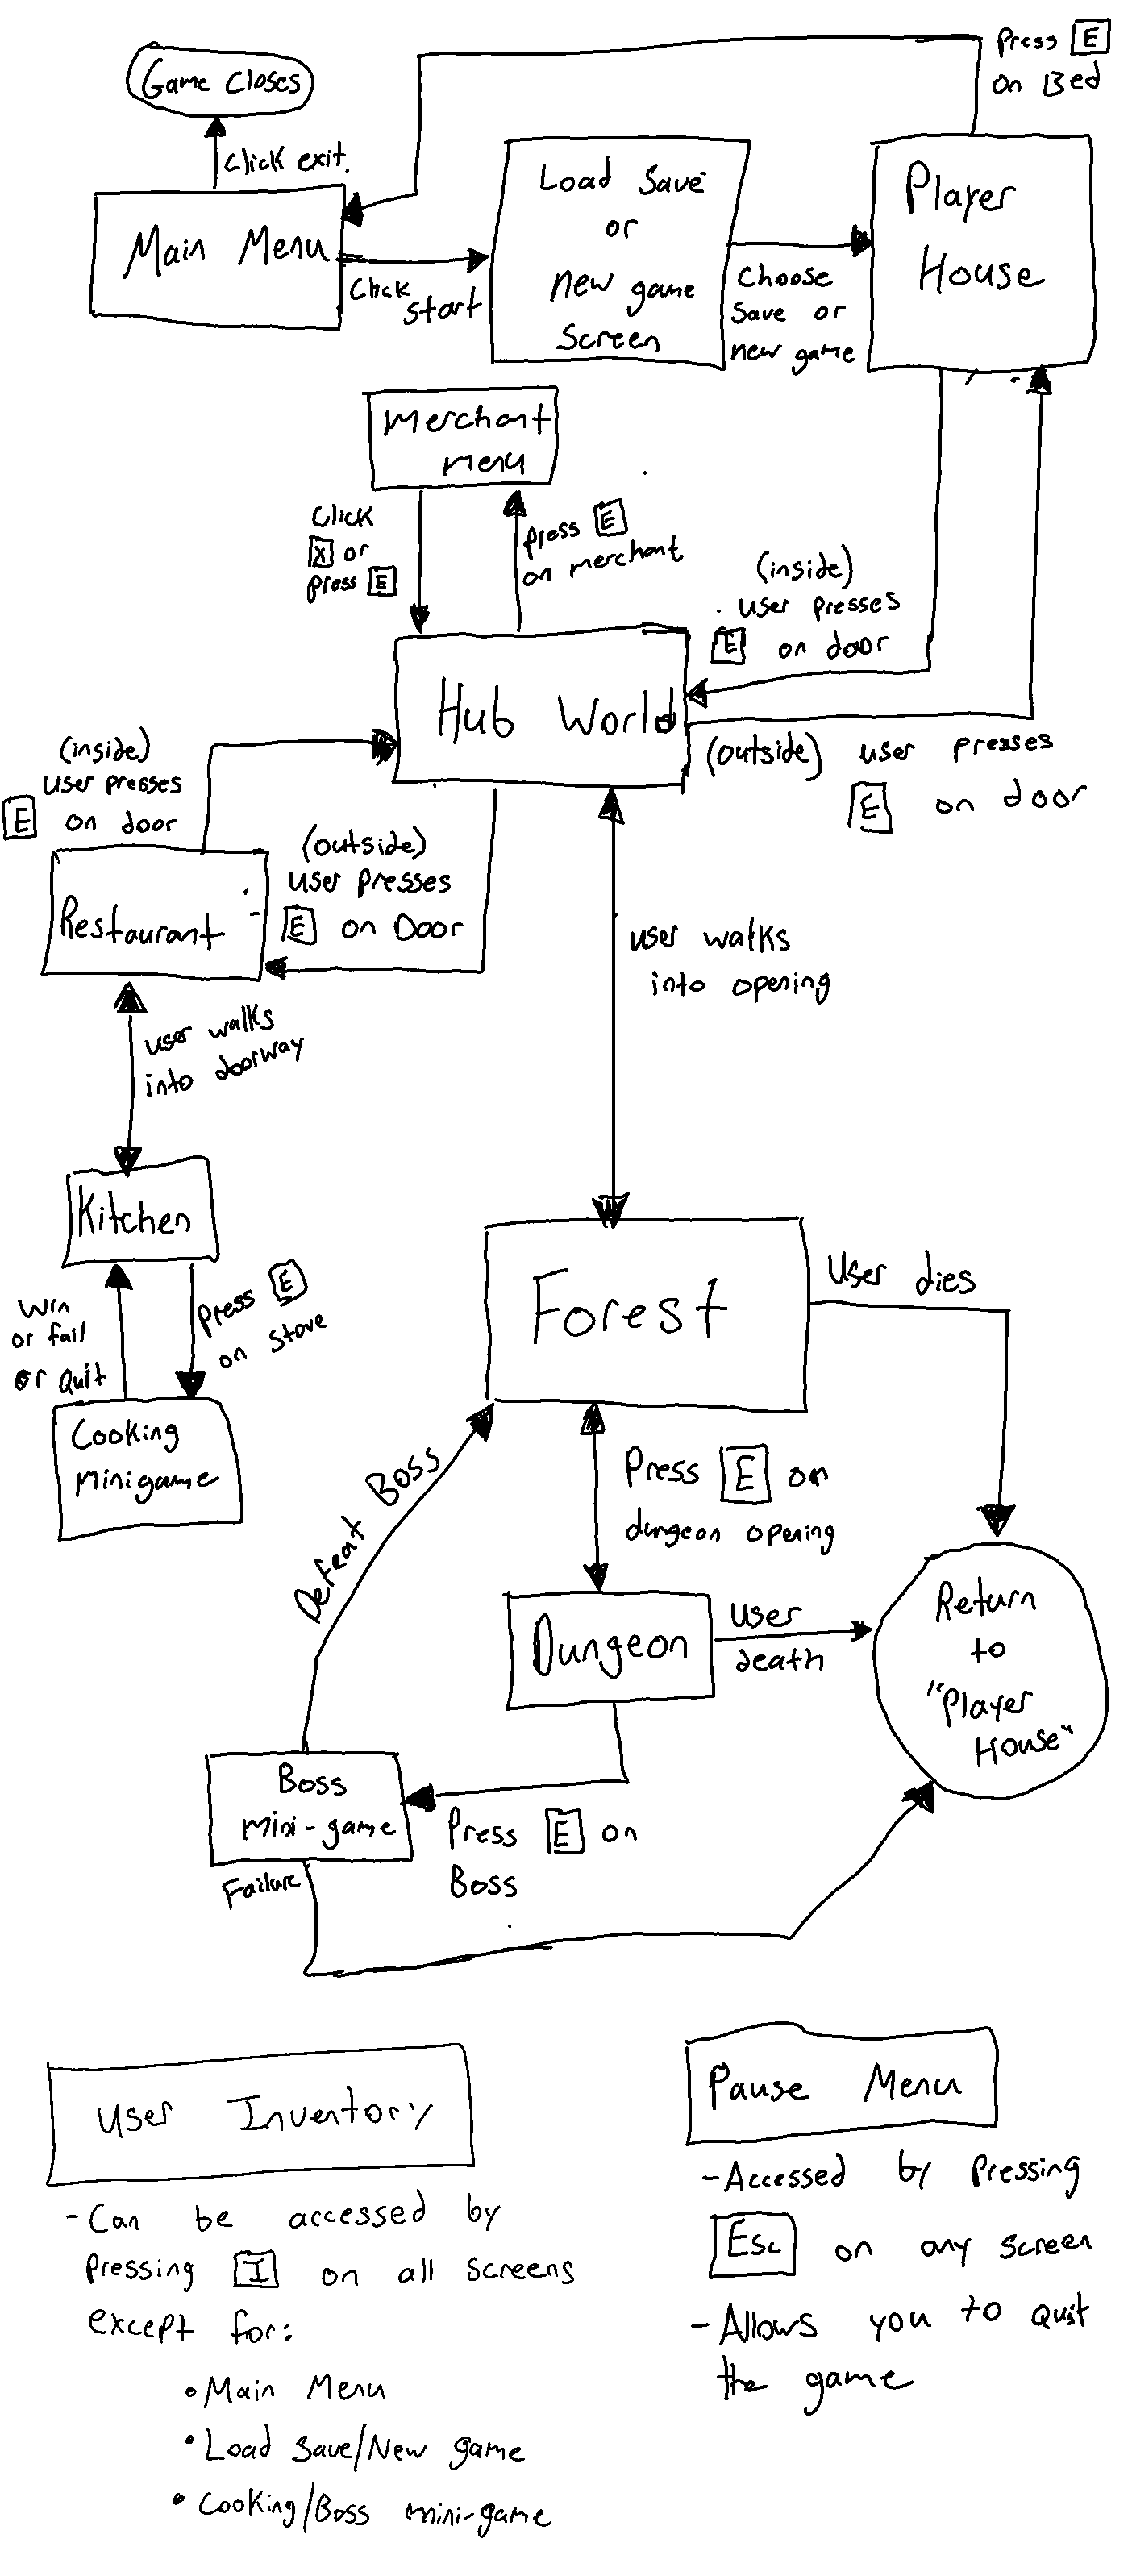 Game Closes
Click exit.
Press E
on Bed
Main Menu
Click
start
Load Save
or
new game
screen
Choose
Save or
new game
Player
House
Merchant
menu
Click
X or
press E
press E
on merchant
(inside)
user presses
E on door
Hub World
(outside) user presses
E on door
(inside)
user presses
E on door
(outside)
user presses
E on Door
Restaurant
user walks
into opening
user walks
into doorway
Kitchen
Win
or fail
or Quit
press E
on stove
Cooking
minigame
Forest
User dies
Defeat Boss
Press E on
dungeon opening
Dungeon
user
death
Return
to
"Player
House"
Boss
mini-game
Press E on
Boss
Failure
User Inventory
- Can be accessed by
pressing I on all screens
except for:
• Main Menu
• Load Save/New game
• Cooking/Boss mini-game
Pause Menu
- Accessed by pressing
Esc on any screen
- Allows you to quit
the game